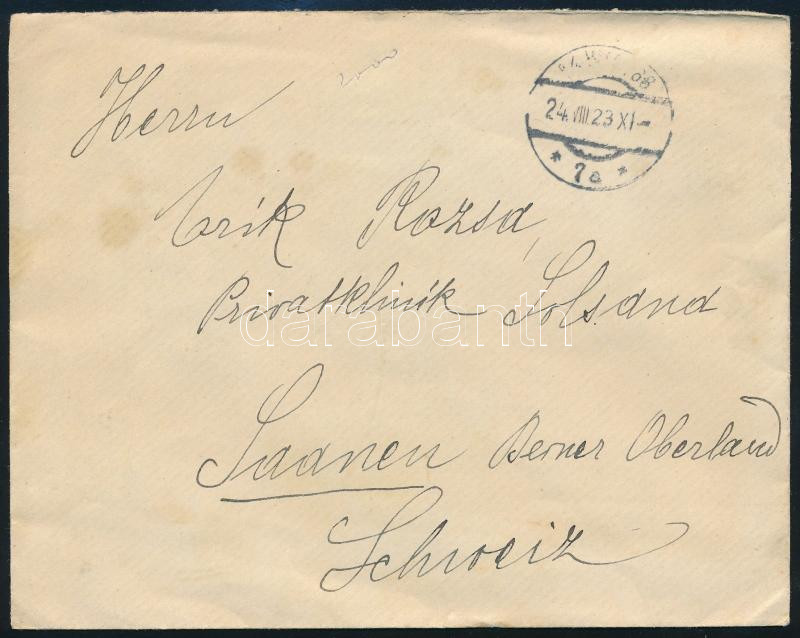 Herrn
2000
24.VIII 23 XI-
* 7a *
Erik Rozsa,
Privatklinik Solsana
darabanth
Saanen Berner Oberland
Schweiz